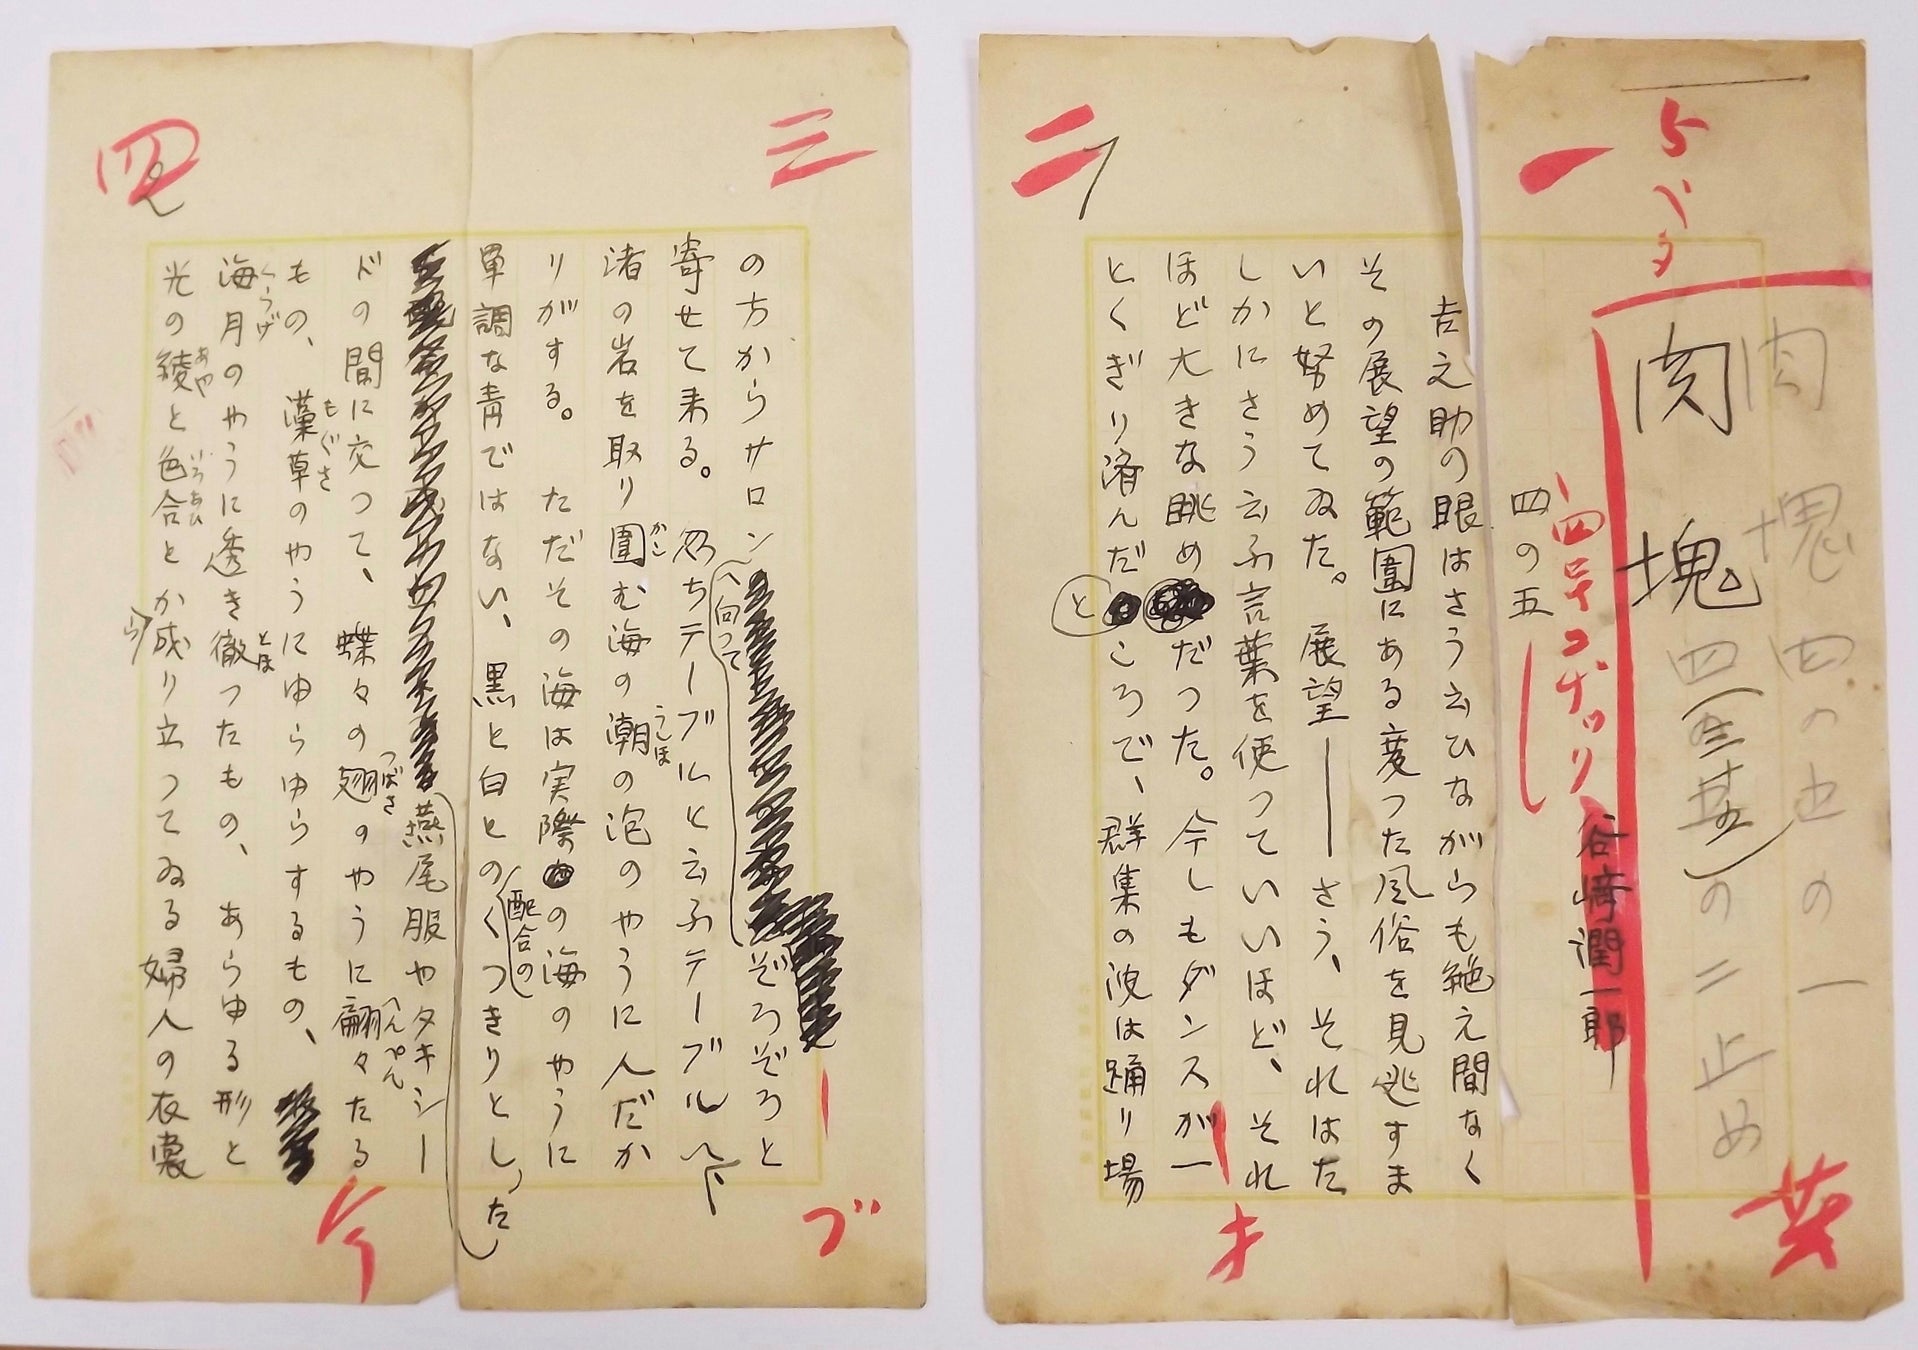 肉塊 四の五の一
肉塊 四(の二止め
谷崎潤一郎
四号コヂツク
四の五
吉之助の眼はさう云ひながらも絶え間なく
その展望の範圍にある変つた風俗を見逃すま
いと努めてゐた。展望――さう、それはた
しかにさう云ふ言葉を使つていいほど、それ
ほど大きな眺めだつた。今しもダンスが一
とくぎり済んだところで、群集の波は踊り場
の方からサロンへ向つてぞろぞろと
寄せて来る。忽ちテーブルと云ふテーブルへ、
渚の岩を取り圍む海の潮の泡のやうに人だか
りがする。ただその海は実際の海のやうに
単調な青ではない、黒と白との配合のくつきりとした
燕尾服やタキシー
ドの間に交つて、蝶々の翅のやうに翩々たる
もの、藻草のやうにゆらゆらするもの、
海月のやうに透き徹つたもの、あらゆる形と
光の綾と色合とから成り立つてゐる婦人の衣裳
かこ
うしほ
つばさ
へんぺん
もぐさ
くらげ
とほ
あや
いろあひ
一
二
三
四